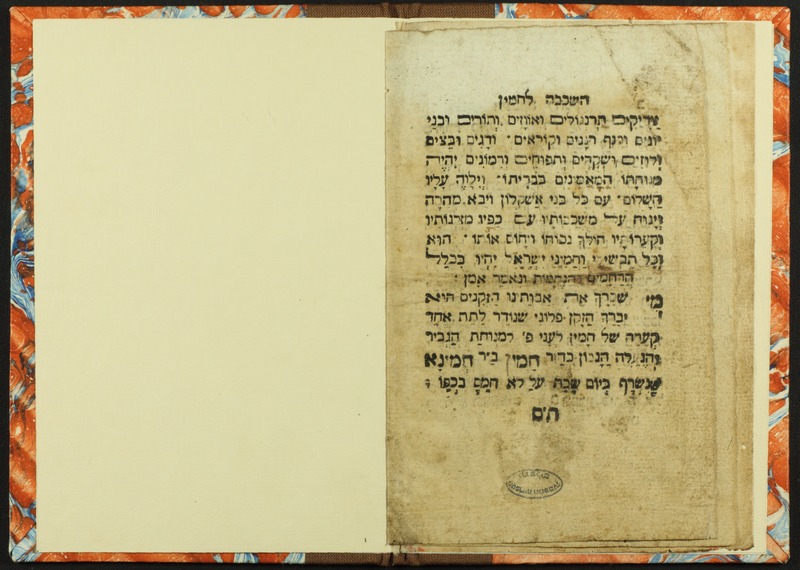 השכבה לחמין
צדיקים תרנגולים ואווזים ותורים ובני
יונים וכנף רננים וקוראים ודגים ובצים
ולוזים ושקדים ותפוחים ורמונים יהיה
מנוחתו המאמינים בבריתו וילוה עליו
השלום עם כל בני אשקלון ויבא מהרה
וינוח על משכבותיו עם כפיו מזרנותיו
וקערותיו הולך נכוחו ויחום אותו הוא
וכל תבשילי וחמיני ישראל יהיו בכלל
הרחמים והנחמות ונאמר אמן
מי שברך את אבותינו הזקנים הוא
יברך הזקן פלוני שנודר לתת אחד
קערה של חמין לעני פ' למנוחת הגביר
והנעלה הנבון כה"ר חמין ב"ר חמינא
שנשרף ביום שבת על לא חמס בכפו
תם